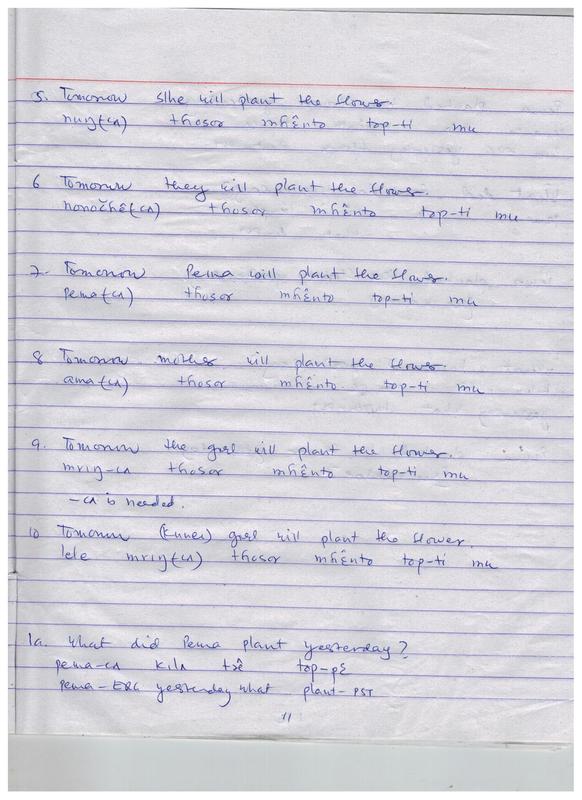 5. Tomorrow s/he will plant the flower.
nuŋ(-cʌ) thosor mɦɛ̂nto top-ti mu
6 Tomorrow they will plant the flower.
nonožhê(-cʌ) thosor mɦɛ̂nto top-ti mu
7. Tomorrow Pema will plant the flower.
pema(-cʌ) thosor mɦɛ̂nto top-ti mu
8 Tomorrow mother will plant the flower.
ama(-cʌ) thosor mɦɛ̂nto top-ti mu
9. Tomorrow the girl will plant the flower.
mriŋ-cʌ thosor mɦɛ̂nto top-ti mu
-cʌ is needed.
10 Tomorrow girl will plant the flower.
lele mriŋ(-cʌ) thosor mɦɛ̂nto top-ti mu
1a. What did Pema plant yesterday?
pema-cʌ kilʌ top-pɛ
pema-ERG yesterday what plant-PST
11